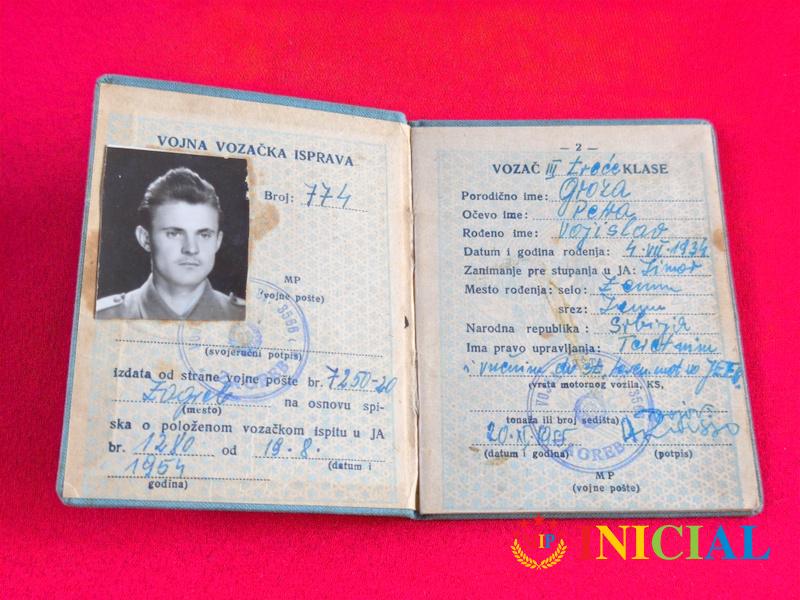 VOJNA VOZAČKA ISPRAVA
Broj: 774
MP
(vojne pošte)
(svojeručni potpis)
izdata od strane vojne pošte br. 7250-20
Zagreb na osnovu spi-
(mesto)
ska o položenom vozačkom ispitu u JA
br. 1280 od 19.8.
(datum i
1954
godina)
— 2 —
VOZAČ III treće KLASE
Porodično ime: Groza
Očevo ime: Petra
Rođeno ime: Vojislav
Datum i godina rođenja: 4. VII. 1934
Zanimanje pre stupanja u JA:
Mesto rođenja: selo:
srez:
Narodna republika: Srbija
Ima pravo upravljanja: Teretnim
i vučnim
(vrata motornog vozila, KS,
tonaža ili broj sedišta)
20.
(datum i godina) (potpis)
ZAGREB
MP
(vojne pošte)
IP
INICIAL